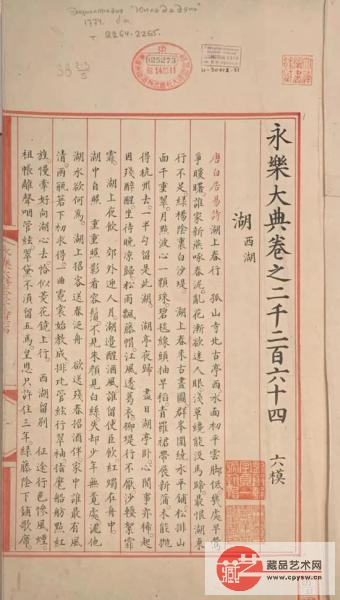 Энциклопедия "Юнлэ дадянь"
2264-2265.
025273
永樂大典卷之二千二百六十四 六模
湖 西湖
唐白居易詩湖上春行 孤山寺北古亭西水面初平雲脚低幾處早鶯
爭暖樹誰家新燕啄春泥亂花漸欲迷人眼淺草纔能沒馬蹄最恨湖東
行不足綠楊陰裏白沙堤 湖上春來古畫圖群峯圍繞水平鋪松排山
面千重翠月點波心一顆珠碧毯線頭抽早稻青羅裙帶展新蒲未能拋
得杭州去一半勾留是此湖 湖亭夜歸 盡日湖亭臥心閒事亦稀起
因殘醉醒坐待晚涼歸松雨飄藤帽江風透葛衣柳堤行不厭沙軟絮霏
霏 湖上夜飲 郊外迎人月湖邊醒酒風誰留使臣飲紅燭在舟中
湖中自照 重重照影看容鬢不見朱顏見白絲失却少年無覓處泥他
湖水欲何為 湖上招客送春汎舟 欲送殘春招酒伴家中誰最有風
清兩瓶箬下初求得一曲霓裳始教成排比管絃行翠袖指麾船舫點紅
旌慢牽好向湖心去恰似菱花鏡上行 西湖留別 征途行色慘風煙
祖帳離聲咽管絃翠黛不須留五馬皇恩只許住三年綠藤陰下鋪歌席
藏品艺术网
www.cpysw.cn